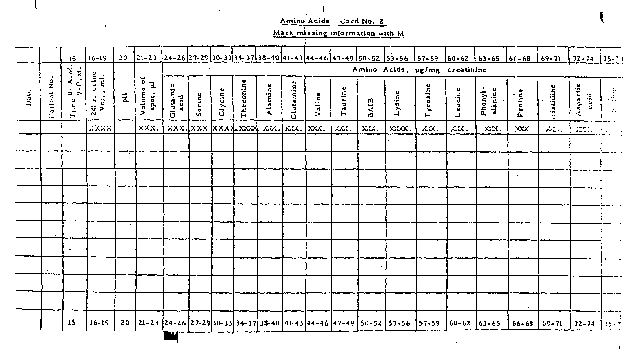 Amino Acids Card No. 2
Mark missing information with M
15 16-19 20 21-23 24-26 27-29 30-33 34-37 38-40 41-43 44-46 47-49 50-52 53-56 57-59 60-62 63-65 66-68 69-71 72-74
Amino Acids, µg/mg creatinine
Date
Patient No.
24 hr. urine Vol., ml.
pH
Volume of
Glutamic acid
Serine
Glycine
Threonine
Alanine
Glutamine
Valine
Taurine
BAIB
Lysine
Tyrosine
Leucine
Phenyl-alanine
Aspartic acid
XXXX XXX. XXX. XXX. XXXX XXXX XXX. XXX. XXX. XXX. XXX. XXXX. XXX. XXX. XXX. XXX XXX. XXX.
15 16-19 20 21-23 24-26 27-29 30-33 34-37 38-40 41-43 44-46 47-49 50-52 53-56 57-59 60-62 63-65 66-68 69-71 72-74